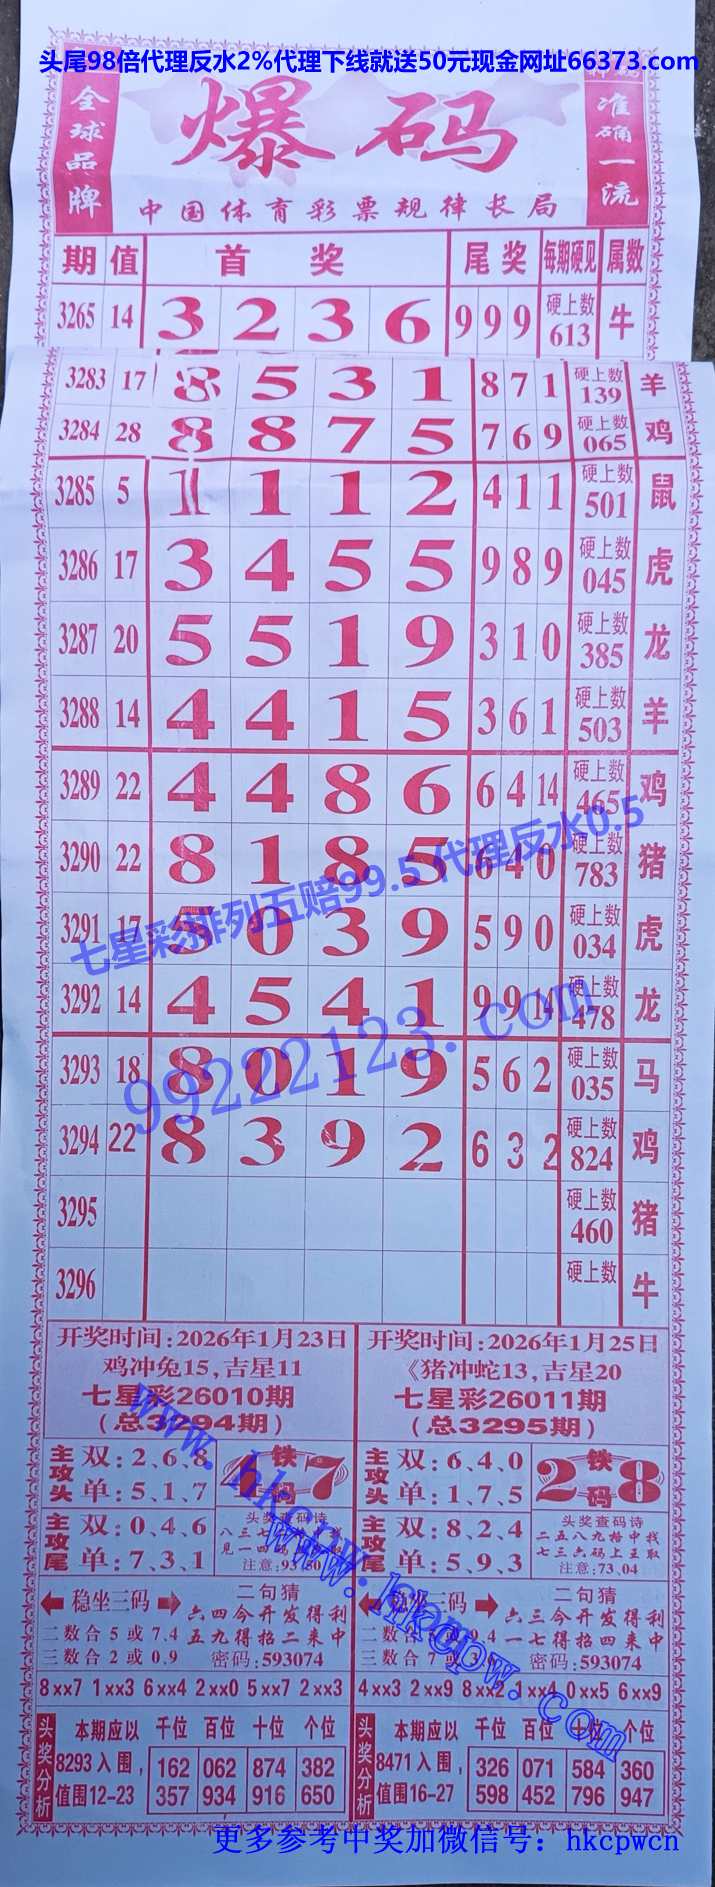 头尾98倍代理反水2%代理下线就送50元现金网址66373.com
全球品牌
爆码
准确一流
中国体育彩票规律长局
期 值 首奖 尾奖 每期硬见 属数
3265 14 3 2 3 6 9 9 9 硬上数 613 牛
3283 17 8 5 3 1 8 7 1 硬上数 139 羊
3284 28 8 8 7 5 7 6 9 硬上数 065 鸡
3285 5 1 1 1 2 4 1 1 硬上数 501 鼠
3286 17 3 4 5 5 9 8 9 硬上数 045 虎
3287 20 5 5 1 9 3 1 0 硬上数 385 龙
3288 14 4 4 1 5 3 6 1 硬上数 503 羊
3289 22 4 4 8 6 6 4 14 硬上数 465 鸡
3290 22 8 1 8 5 6 4 0 硬上数 783 猪
七星彩排列五赔99.5 代理反水0.5
3291 17 5 0 3 9 5 9 0 硬上数 034 虎
3292 14 4 5 4 1 9 9 14 硬上数 478 龙
99222123.com
3293 18 8 0 1 9 5 6 2 硬上数 035 马
3294 22 8 3 9 2 6 3 2 硬上数 824 鸡
3295 硬上数 460 猪
3296 硬上数 牛
开奖时间:2026年1月23日
鸡冲兔15,吉星11
七星彩26010期
(总3294期)
主攻头 双:2、6、8
单:5、1、7
铁码 7
主攻尾 双:0、4、6
单:7、3、1
头奖查码诗
注意:93、50
稳坐三码
二数合5或7、4
三数合2或0、9
二句猜
六四今开发得利
五九得招二来中
密码:593074
8xx7 1xx3 6xx4 2xx0 5xx7 2xx3
头奖分析
本期应以 千位 百位 十位 个位
8293入围, 162 062 874 382
值围12-23 357 934 916 650
开奖时间:2026年1月25日
《猪冲蛇13,吉星20
七星彩26011期
(总3295期)
主攻头 双:6、4、0
单:1、7、5
2 铁码 8
主攻尾 双:8、2、4
单:5、9、3
头奖查码诗
二五八九格中找
七三六码上主取
注意:73、04
稳坐三码
二句猜
六三今开发得利
一七得招四来中
密码:593074
4xx3 2xx9 8xx2 1xx4 0xx5 6xx9
头奖分析
本期应以 千位 百位 十位 个位
8471入围, 326 071 584 360
值围16-27 598 452 796 947
www.hkcpw.com
www.hkcpw.com
更多参考中奖加微信号:hkcpwcn